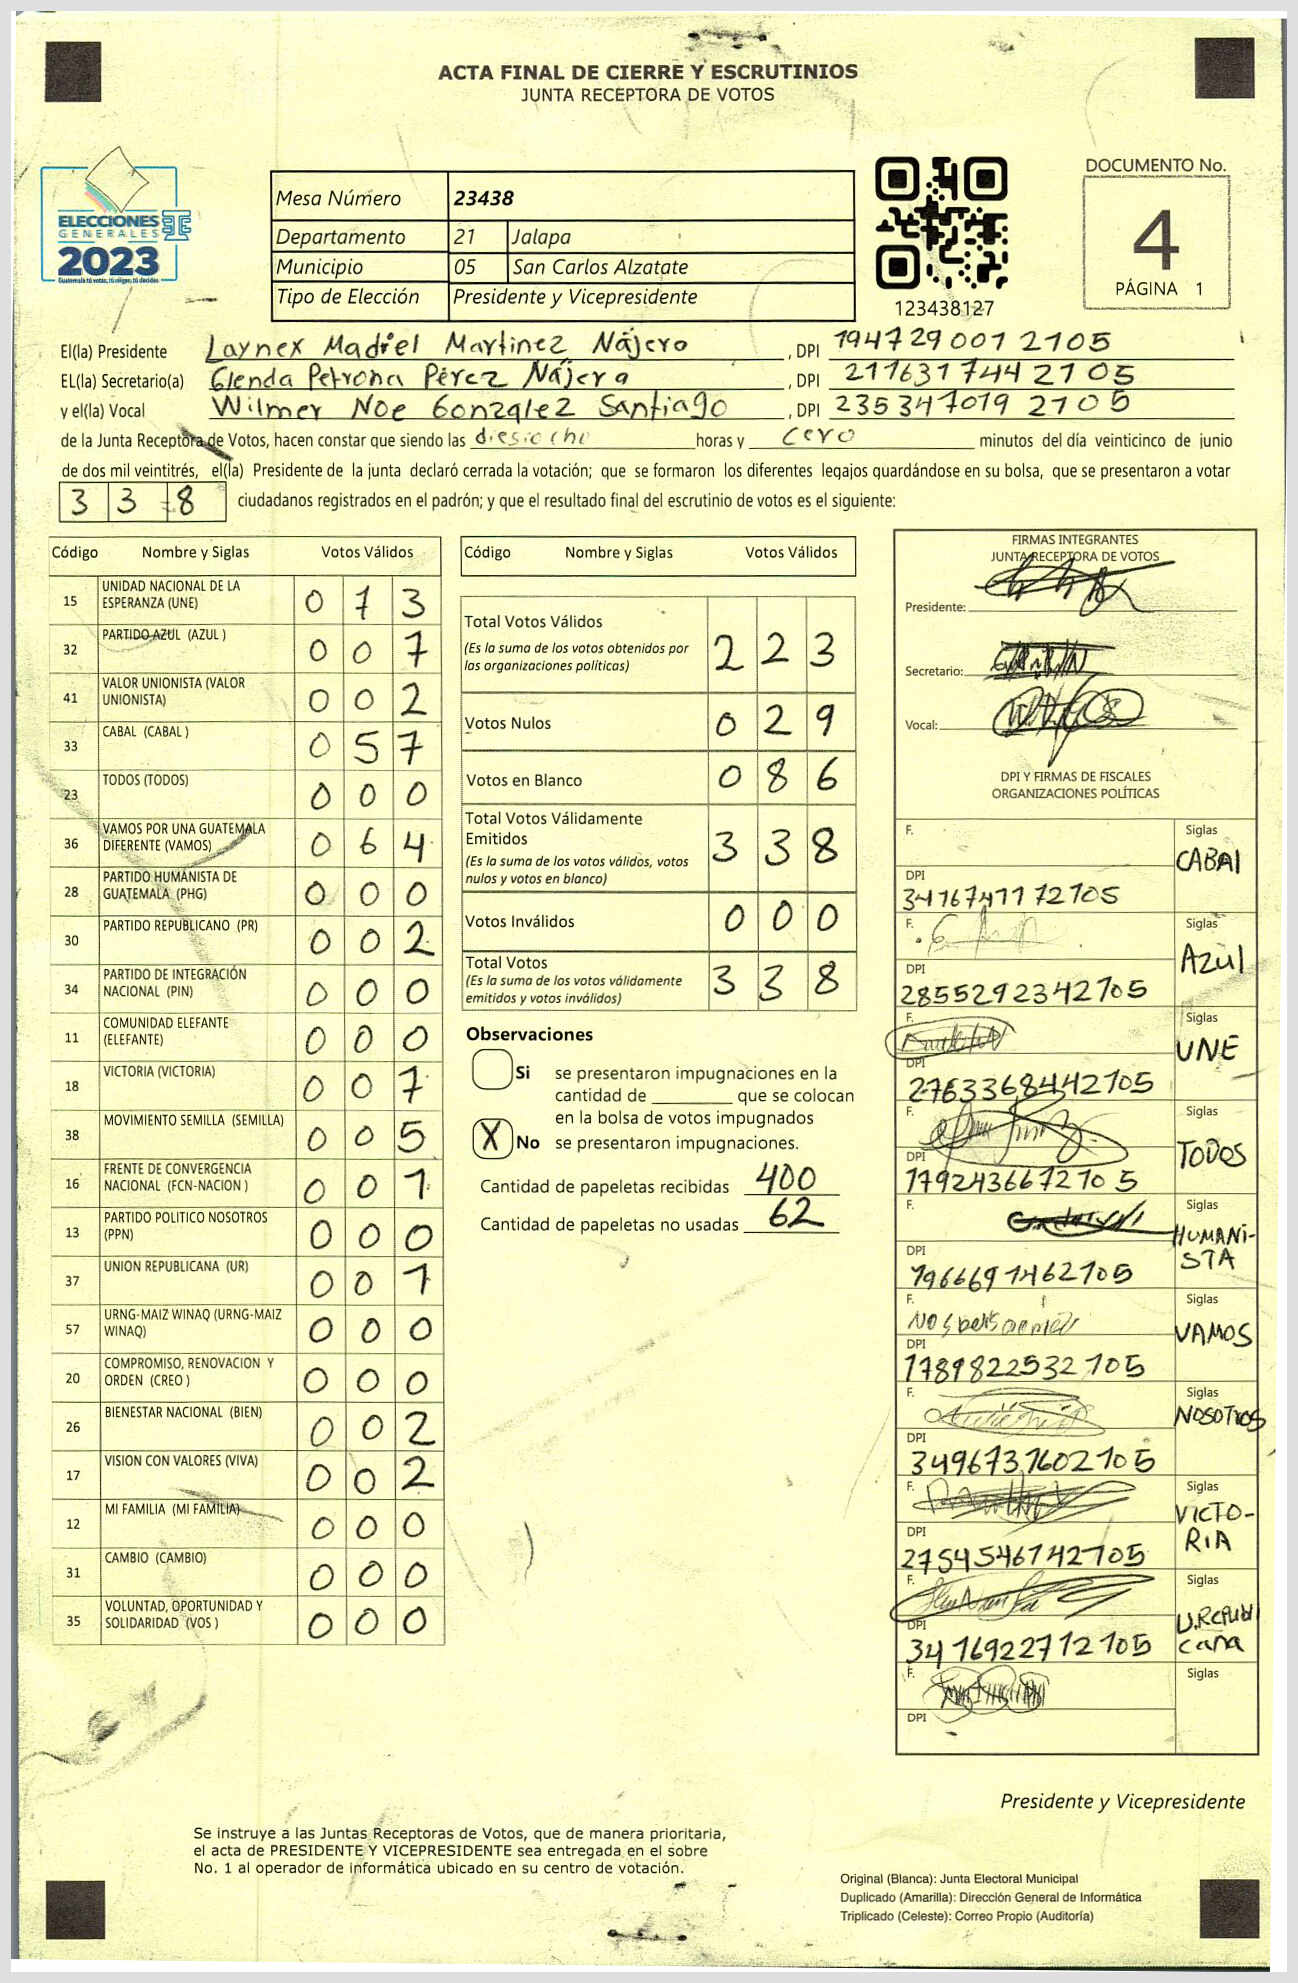 ACTA FINAL DE CIERRE Y ESCRUTINIOS
JUNTA RECEPTORA DE VOTOS
ELECCIONES
GENERALES
2023
Guatemala tú votas, tú eliges, tú decides
Mesa Número 23438
Departamento 21 Jalapa
Municipio 05 San Carlos Alzatate
Tipo de Elección Presidente y Vicepresidente
123438127
DOCUMENTO No.
4
PÁGINA 1
El(la) Presidente Laynex Madiel Martinez Nájero , DPI 194729001 2105
EL(la) Secretario(a) Glenda Petrona Pérez Nájera , DPI 211631744 2105
y el(la) Vocal Wilmer Noe Gonzalez Santiago , DPI 235347019 2105
de la Junta Receptora de Votos, hacen constar que siendo las diesiocho horas y cero minutos del día veinticinco de junio
de dos mil veintitrés, el(la) Presidente de la junta declaró cerrada la votación; que se formaron los diferentes legajos guardándose en su bolsa, que se presentaron a votar
3 3 8 ciudadanos registrados en el padrón; y que el resultado final del escrutinio de votos es el siguiente:
Código Nombre y Siglas Votos Válidos
15 UNIDAD NACIONAL DE LA ESPERANZA (UNE) 0 7 3
32 PARTIDO AZUL (AZUL ) 0 0 7
41 VALOR UNIONISTA (VALOR UNIONISTA) 0 0 2
33 CABAL (CABAL ) 0 5 7
23 TODOS (TODOS) 0 0 0
36 VAMOS POR UNA GUATEMALA DIFERENTE (VAMOS) 0 6 4
28 PARTIDO HUMANISTA DE GUATEMALA (PHG) 0 0 0
30 PARTIDO REPUBLICANO (PR) 0 0 2
34 PARTIDO DE INTEGRACIÓN NACIONAL (PIN) 0 0 0
11 COMUNIDAD ELEFANTE (ELEFANTE) 0 0 0
18 VICTORIA (VICTORIA) 0 0 7
38 MOVIMIENTO SEMILLA (SEMILLA) 0 0 5
16 FRENTE DE CONVERGENCIA NACIONAL (FCN-NACION ) 0 0 1
13 PARTIDO POLITICO NOSOTROS (PPN) 0 0 0
37 UNION REPUBLICANA (UR) 0 0 1
57 URNG-MAIZ WINAQ (URNG-MAIZ WINAQ) 0 0 0
20 COMPROMISO, RENOVACION Y ORDEN (CREO ) 0 0 0
26 BIENESTAR NACIONAL (BIEN) 0 0 2
17 VISION CON VALORES (VIVA) 0 0 2
12 MI FAMILIA (MI FAMILIA) 0 0 0
31 CAMBIO (CAMBIO) 0 0 0
35 VOLUNTAD, OPORTUNIDAD Y SOLIDARIDAD (VOS ) 0 0 0
Código Nombre y Siglas Votos Válidos
Total Votos Válidos 2 2 3
(Es la suma de los votos obtenidos por
las organizaciones políticas)
Votos Nulos 0 2 9
Votos en Blanco 0 8 6
Total Votos Válidamente
Emitidos 3 3 8
(Es la suma de los votos válidos, votos
nulos y votos en blanco)
Votos Inválidos 0 0 0
Total Votos 3 3 8
(Es la suma de los votos válidamente
emitidos y votos inválidos)
Observaciones
Si se presentaron impugnaciones en la
cantidad de ________ que se colocan
en la bolsa de votos impugnados
X No se presentaron impugnaciones.
Cantidad de papeletas recibidas 400
Cantidad de papeletas no usadas 62
FIRMAS INTEGRANTES
JUNTA RECEPTORA DE VOTOS
Presidente:
Secretario:
Vocal:
DPI Y FIRMAS DE FISCALES
ORGANIZACIONES POLÍTICAS
F. Siglas
CABAL
DPI
3416741172105
F. Siglas
Azul
DPI
2855292342105
F. Siglas
UNE
DPI
2763368442105
F. Siglas
TODOS
DPI
1792436672105
F. Siglas
HUMANI-
STA
DPI
1966691462105
F. Siglas
VAMOS
DPI
1789822532105
F. Siglas
NOSOTROS
DPI
3496731602105
F. Siglas
VICTO-
RIA
DPI
2754546142105
F. Siglas
U.Republi
cana
DPI
3416922712105
F. Siglas
DPI
Presidente y Vicepresidente
Se instruye a las Juntas Receptoras de Votos, que de manera prioritaria,
el acta de PRESIDENTE Y VICEPRESIDENTE sea entregada en el sobre
No. 1 al operador de informática ubicado en su centro de votación.
Original (Blanca): Junta Electoral Municipal
Duplicado (Amarilla): Dirección General de Informática
Triplicado (Celeste): Correo Propio (Auditoría)